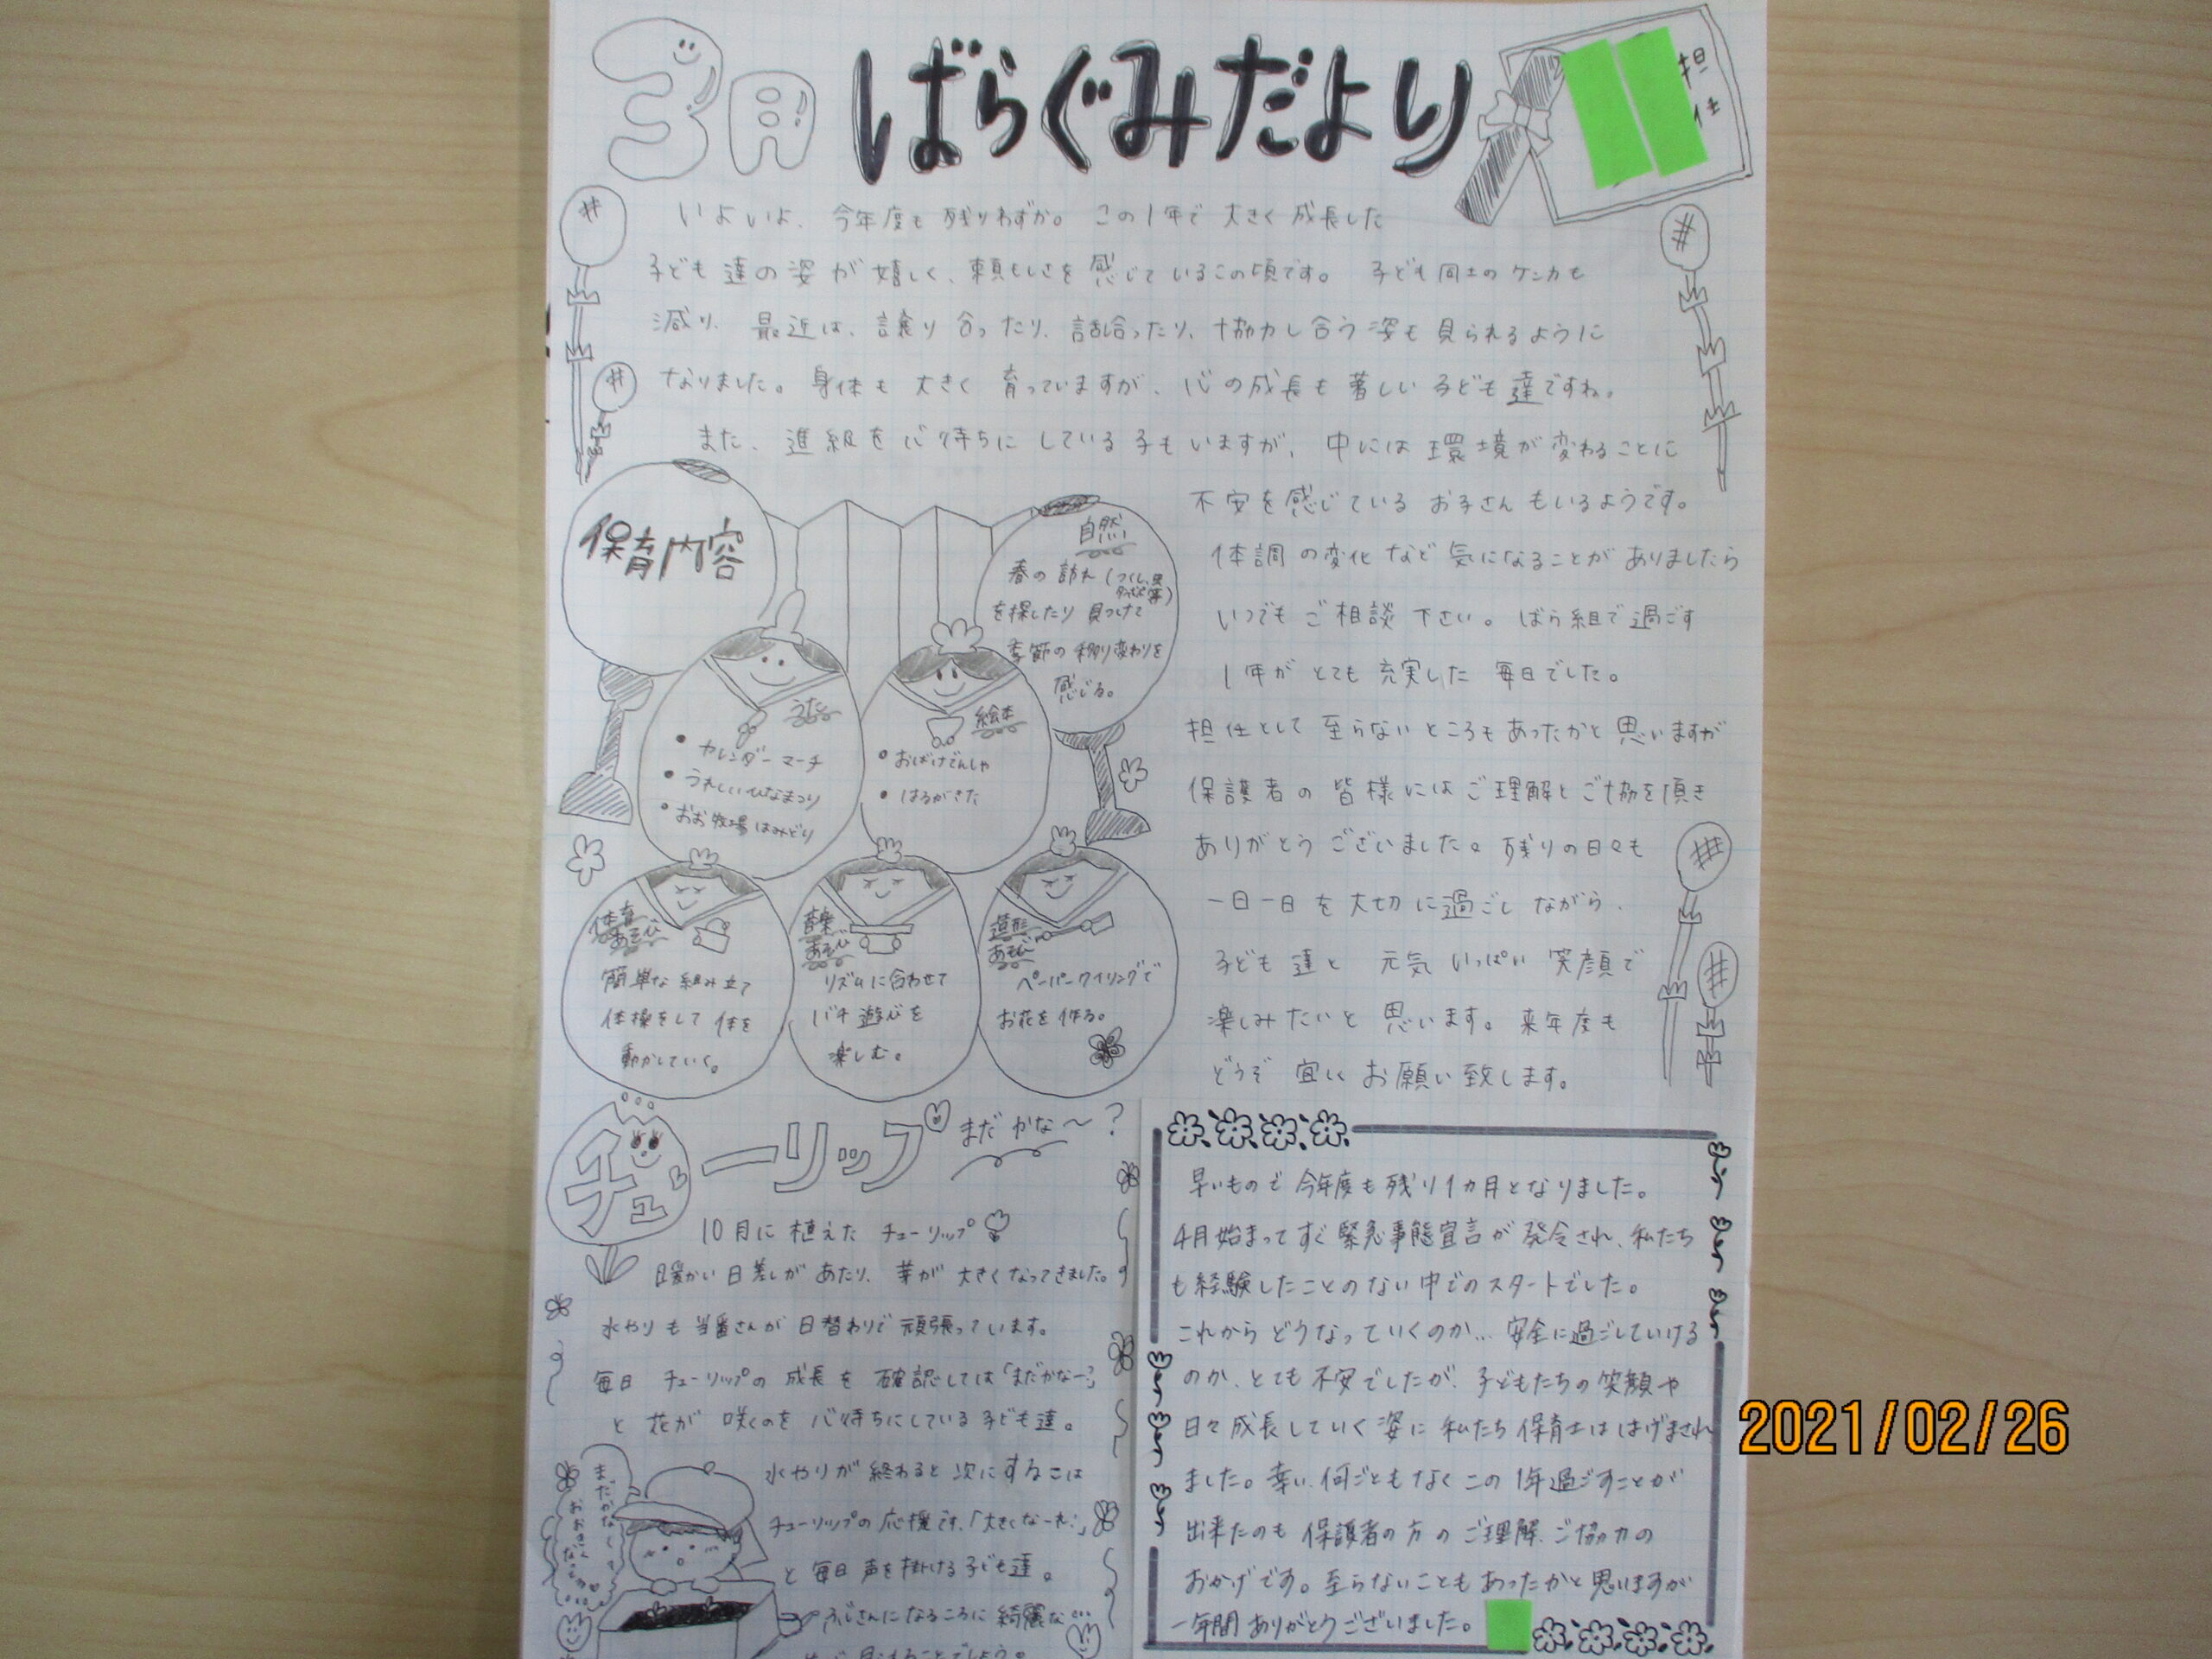 3月 ばらぐみだより
担任
いよいよ、今年度も残りわずか。この1年で大きく成長した
子ども達の姿が嬉しく、頼もしさを感じているこの頃です。子ども同士のケンカも
減り、最近は、譲り合ったり、話合ったり、協力し合う姿も見られるように
なりました。身体も大きく育っていますが、心の成長も著しい子ども達ですね。
また、進組を心待ちにしている子もいますが、中には環境が変わることに
不安を感じているお子さんもいるようです。
体調の変化など気になることがありましたら
いつでもご相談下さい。ばら組で過ごす
1年がとても充実した毎日でした。
担任として至らないところもあったかと思いますが
保護者の皆様にはご理解とご協を頂き
ありがとうございました。残りの日々も
一日一日を大切に過ごしながら、
子ども達と元気いっぱい笑顔で
楽しみたいと思います。来年度も
どうぞ宜しくお願い致します。
保育内容
自然
春の訪れ(つくし、虫
等)
を探したり見つけて
季節の移り変わりを
感じる。
うた
• カレンダーマーチ
• うれしいひなまつり
• おお牧場はみどり
絵本
• おばけでんしゃ
• はるがきた
体育
あそび
簡単な組み立て
体操をして体を
動かしていく。
音楽
あそび
リズムに合わせて
バチ遊びを
楽しむ。
造形
あそび
ペーパークイリングで
お花を作る。
チューリップまだかな〜?
10月に植えたチューリップ
暖かい日差しがあたり、芽が大きくなってきました。
水やりも当番さんが日替わりで頑張っています。
毎日チューリップの成長を確認しては「まだかなー?」
と花が咲くのを心待ちにしている子ども達。
水やりが終わると次にするこは
チューリップの応援です。「大きくなーれ!」
と毎日声を掛ける子ども達。
ふじさんになるころに綺麗な
まだかな〜
おおきく
なぁれ
早いもので今年度も残り1ヵ月となりました。
4月始まってすぐ緊急事態宣言が発令され、私たち
も経験したことのない中でのスタートでした。
これからどうなっていくのか…安全に過ごしていける
のか、とても不安でしたが、子どもたちの笑顔や
日々成長していく姿に私たち保育士ははげまされ
ました。幸い、何ごともなくこの1年過ごすことが
出来たのも保護者の方のご理解、ご協力の
おかげです。至らないこともあったかと思いますが
一年間ありがとうございました。
2021/02/26